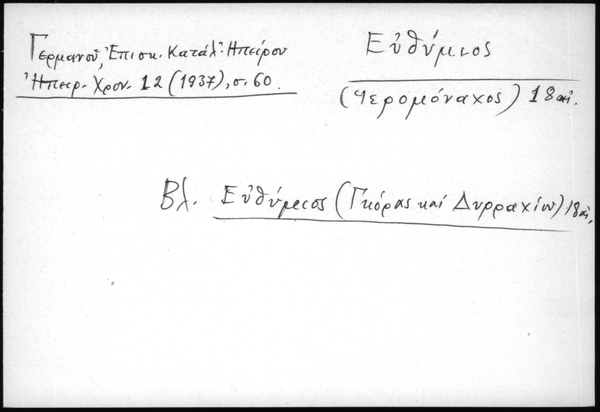 Γερμανοῦ, Ἐπισκ. Κατάλ. Ἠπείρου
Ἠπειρ. Χρον. 12 (1937), σ. 60.
Εὐθύμιος
(Ἱερομόναχος) 18 αἰ.
Βλ. Εὐθύμιος (Γκόρας καί Δυρραχίου) 18 αἰ.